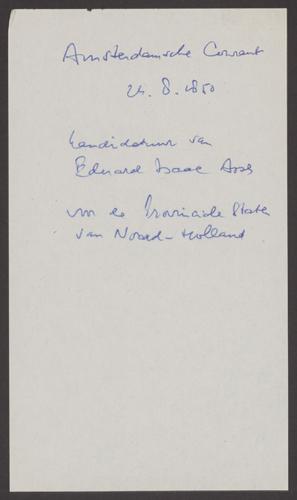 Amsterdamsche Courant
24.8.1850
Kandidatuur van
Eduard Isaac Asser
voor de Provinciale Staten
van Noord-Holland